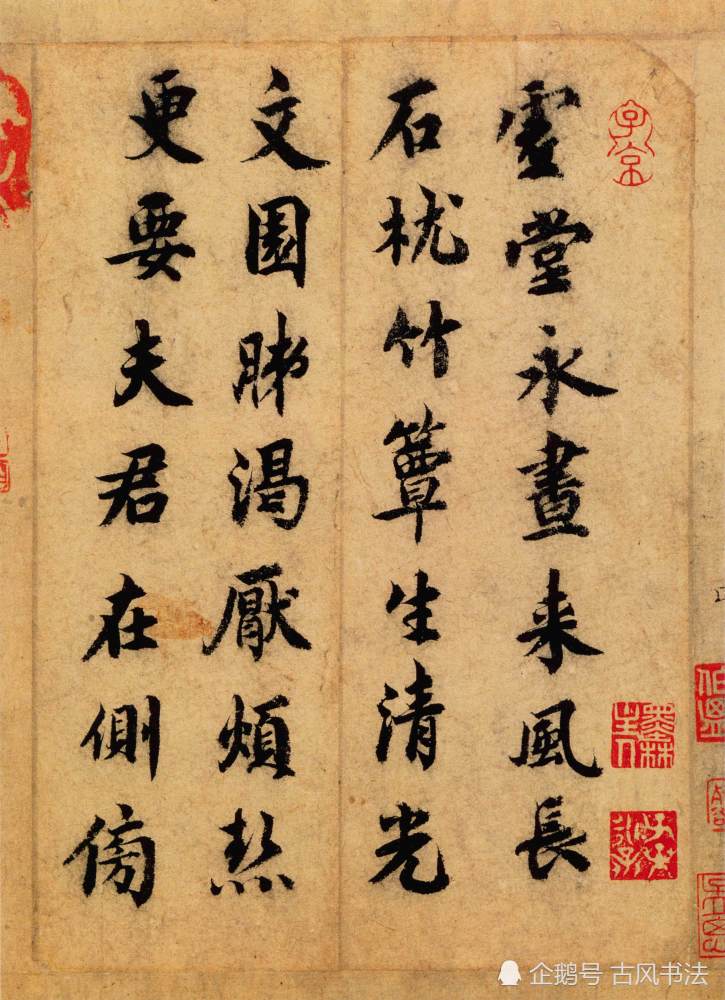 子京
虚堂永晝来風長
石枕竹簟生清光
文園肺渴厭煩熱
更要夫君在側傍
企鹅号 古风书法